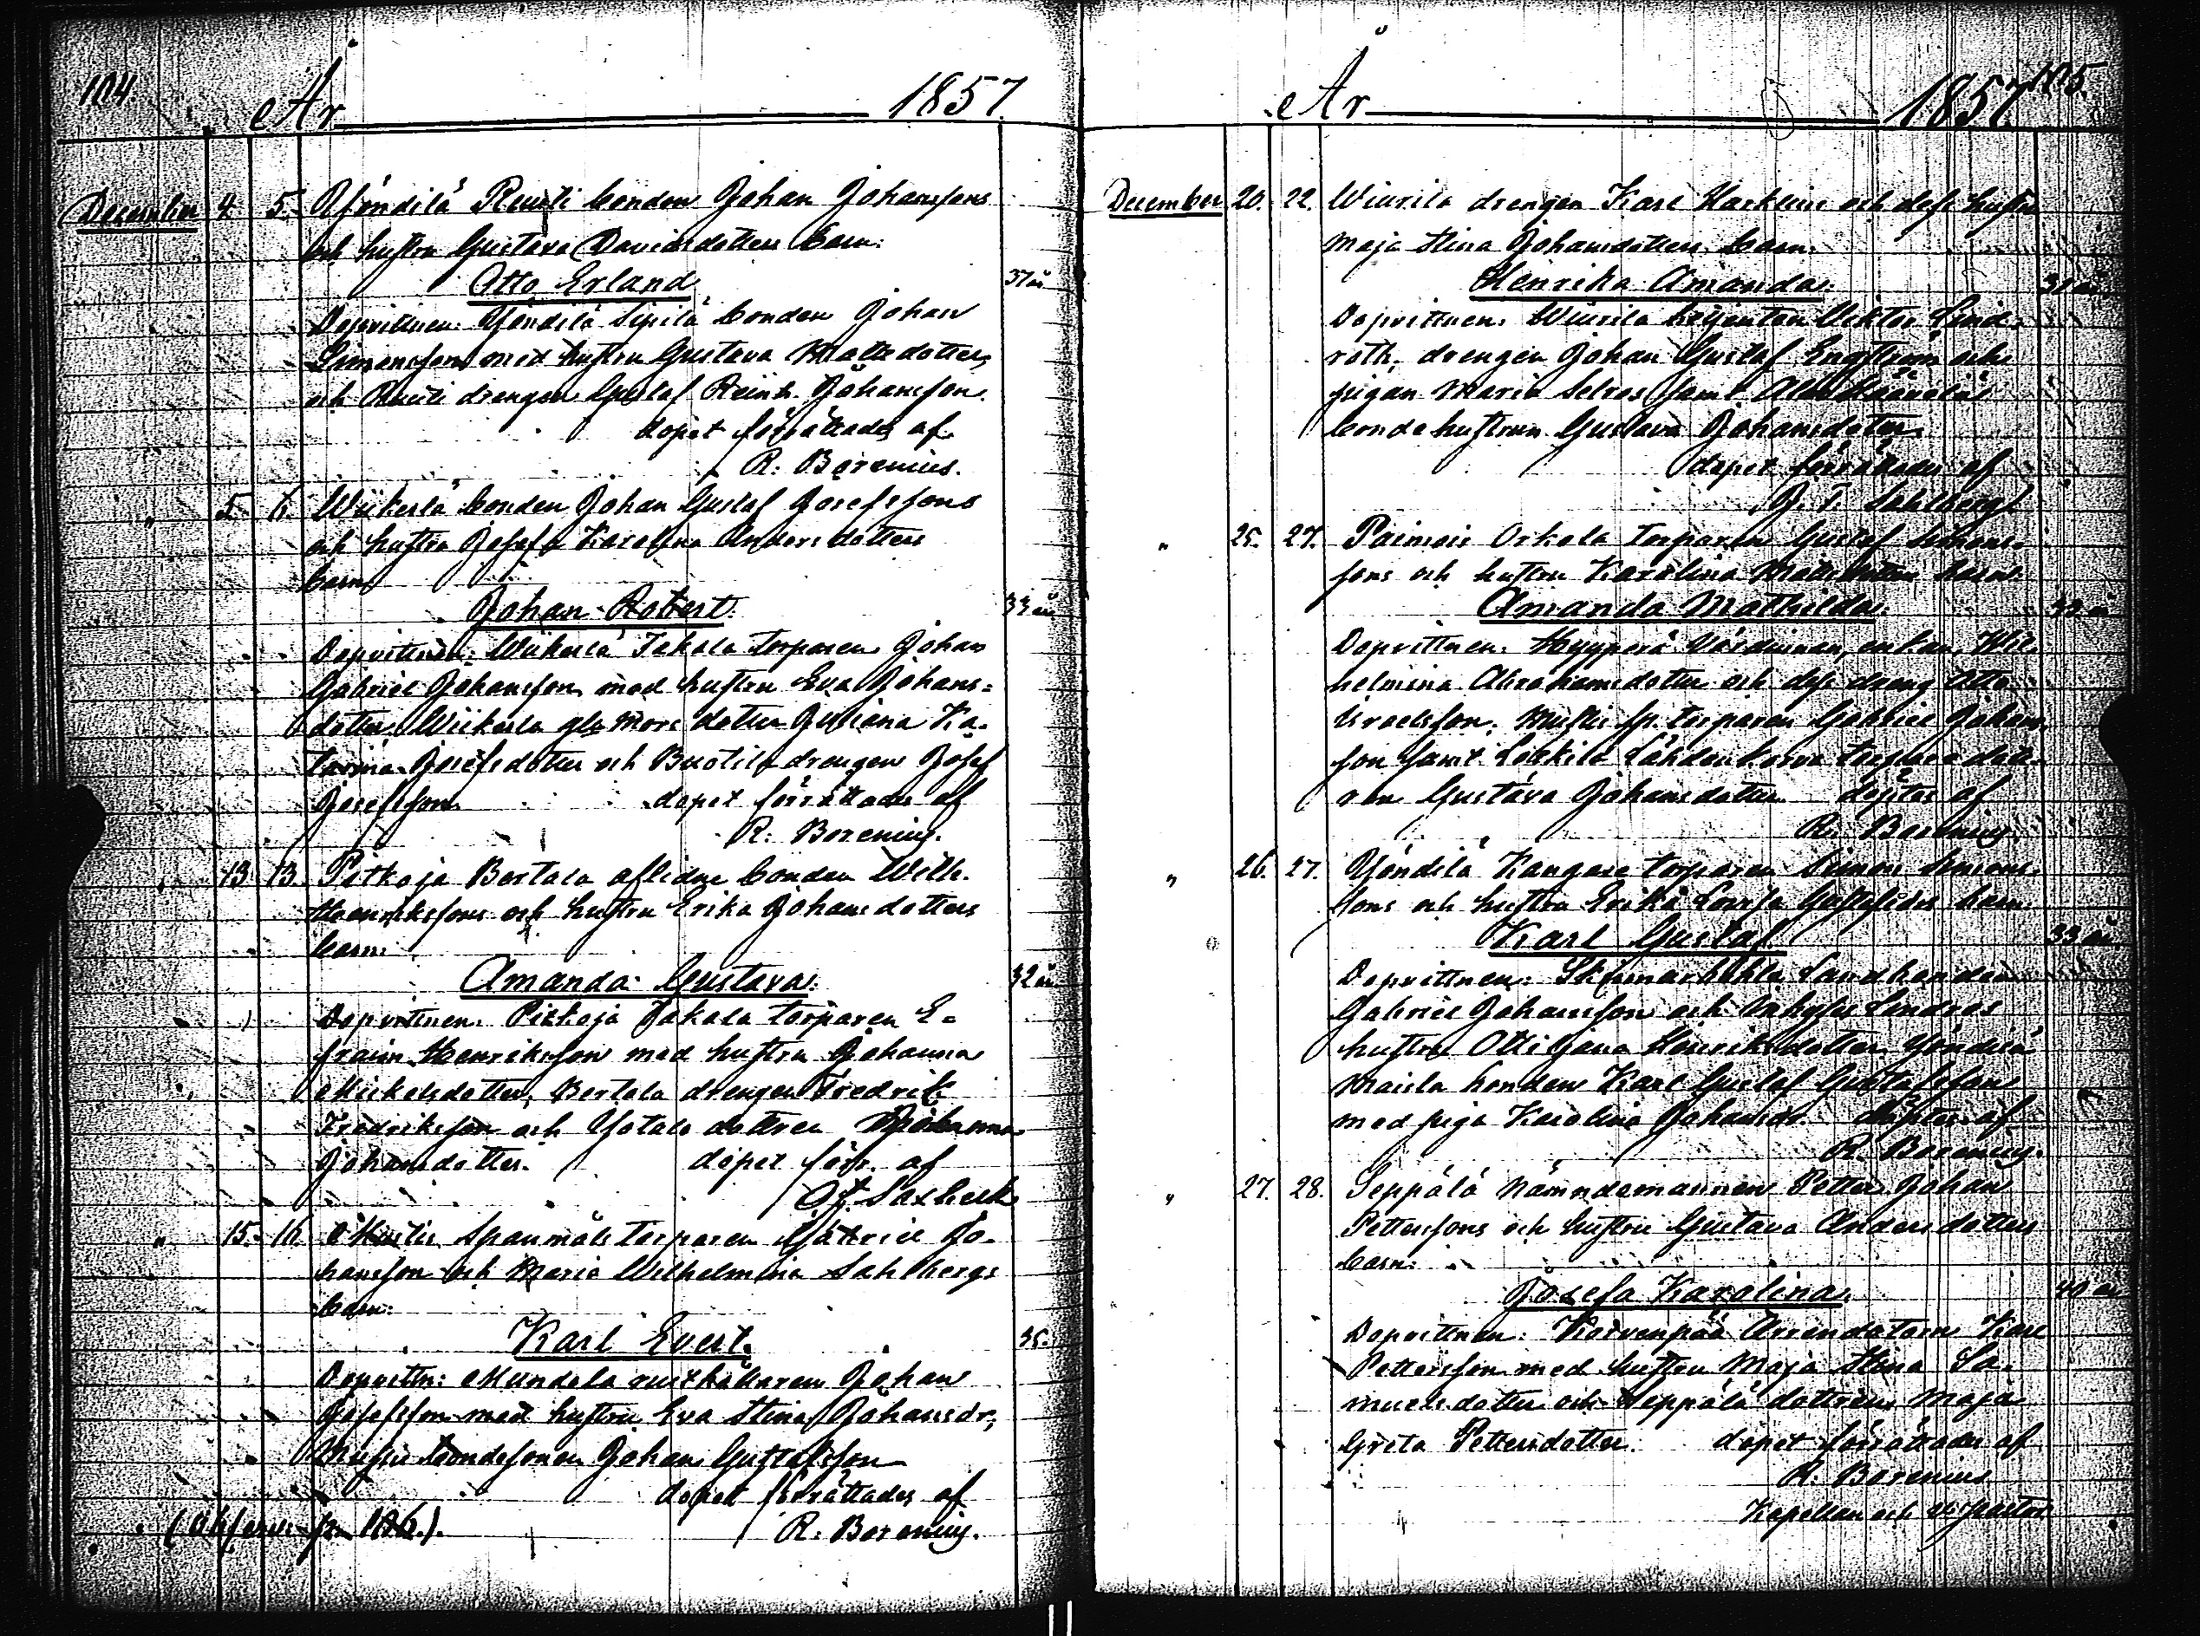 104.
År 1857.
December 4. 5. Yöndilä Ruuti bonden Johan Johanssons
och hustru Gustava Davidsdotters barn:
Otto Erland 37 år
Dopvittnen: Yöndilä Sipilä bonden Johan
Simonsson med hustru Gustava Mattsdotter,
och Ruuti drengen Gustaf Reinh. Johansson.
dopet förrättades af
R. Borenius.
" 5. 6. Wiikerlä bonden Johan Gustaf Josefssons
och hustru Josefa Karolina Andersdotters
barn
Johan Robert. 33 år
Dopvittnen: Wiikerlä Takala torparen Johan
Gabriel Johansson med hustru Eva Johans-
dotter, Wiikerla mors dotter Juliana Ka-
tarina Josefsdotter och Buotila drengen Josef
Josefsson. dopet förrättades af
R. Borenius.
" 13 13. Pitkoja Bertala aflidne bonden Wilh.
Henrikssons och hustru Erika Johansdotters
barn:
Amanda Gustava. 32 år
Dopvittnen. Pitkoja Jakala torparen E-
fraim Henriksson med hustru Johanna
Mickelsdotter, Bertala drengen Fredrik
Fredriksson och Yotala dottren Johanna
Johansdotter. dopet förr. af
Saxbeck
" 15. 16. torparen Gabriel Jo-
hansson och Maria Wilhelmina Sahlbergs
barn:
Karl Evert. 35.
Dopvittn: Mundala rusthållaren Johan
Josefsson med hustru Eva Stina Johansdr,
bondesonen Johan Gustafsson
dopet förrättades af
R. Borenius.
(
105.
År 1857
December 20. 22. Wiurila drengen Karl Harklin och dess hustru
Maja Stina Johansdotters barn.
Henrika Amanda. 31 år
Dopvittnen: Wiurila Viktor Lind-
roth, drengen Johan Gustaf Engström och
pigan Maria Selros samt
bondehustrun Gustava Johansdotter.
dopet förrättades af
J. T. Sahlberg.
" 25. 27. Paimais Orkola torparen Gustaf Simons-
sons och hustru Karolina Mattsdotters barn.
Amanda Mathilda.
Dopvittnen: Hyyperä enkan Wil-
helmina Abrahamsdotter och dess dreng Otto
Israelsson, torparen Gabriel Johans-
son samt torparedott-
ren Gustava Johansdotter. döptes af
R. Borenius.
" 26. 27. Yöndilä Kangare torparen Simon Simons-
sons och hustru Erika Lovisa Gustafsdrs barn
Karl Gustaf 33 år.
Dopvittnen:
Gabriel Johansson och Lindros
hustru Ottiljana Henriksdotter Yöndilä
Maisla bonden Karl Gustaf Gustafsson
med piga Karolina Johansdr. döptes af
R. Borenius.
" 27. 28. Seppälä Nämndemannen Petter Johan
Petterssons och hustru Gustava Andersdotters
barn:
Josefa Karolina. 40 år
Dopvittnen: Korvenpää Arrendatorn Karl
Pettersson med hustru Maja Stina Sa-
muelsdotter och Seppälä dottren Maja
Greta Pettersdotter. dopet förrättades af
R. Borenius
Kapellan och v. pastor